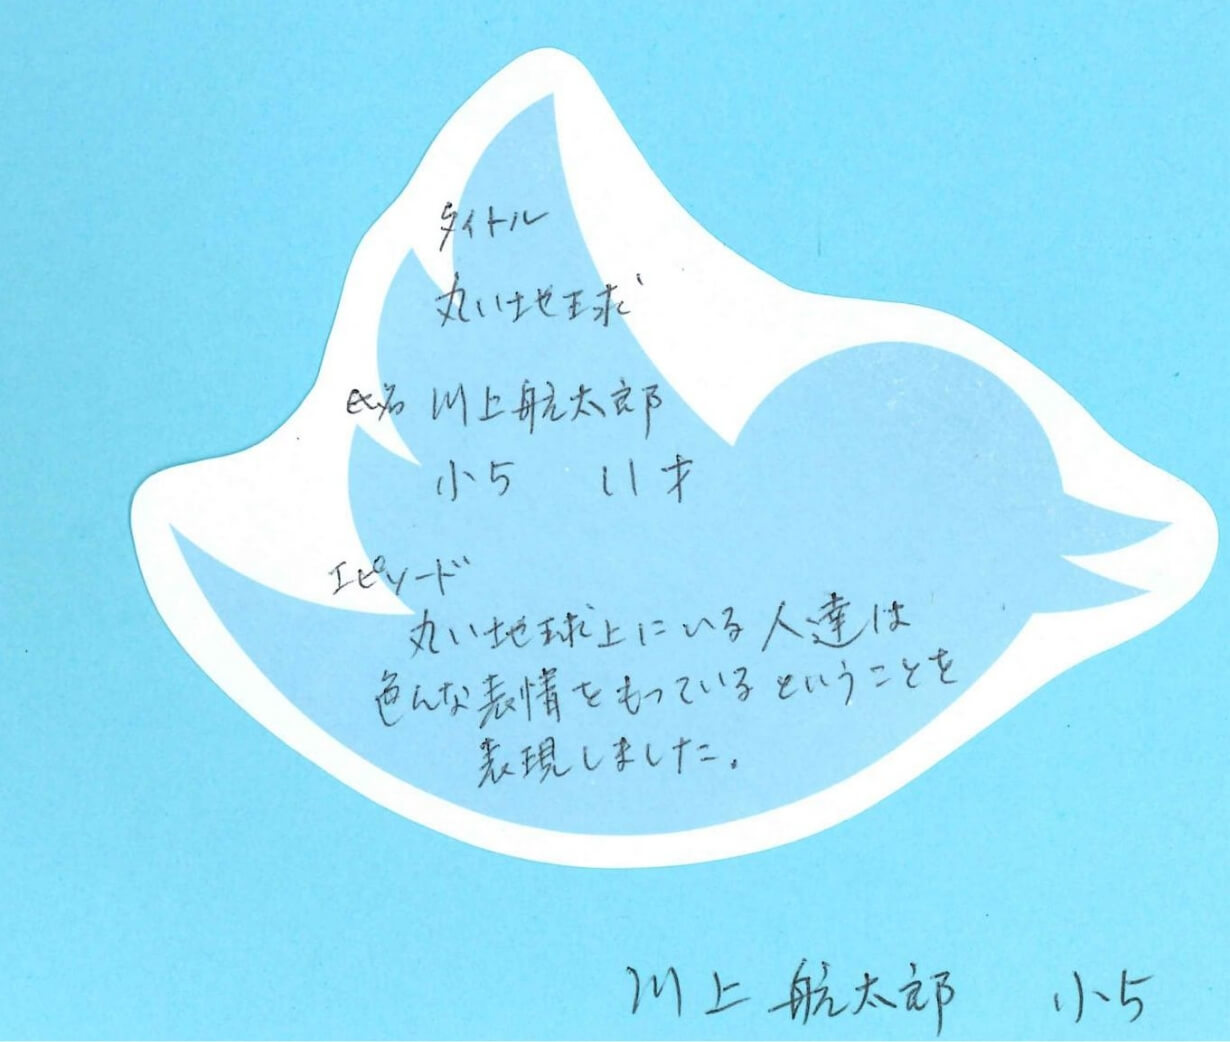 タイトル
丸い地球
氏名 川上航太郎
小5 11才
エピソード
丸い地球上にいる人達は
色んな表情をもっているということを
表現しました。
川上 航太郎 小5